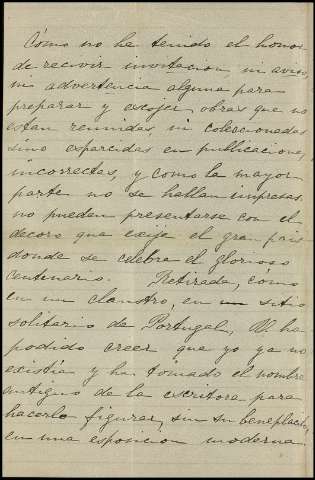 Cómo no he tenido el honor
de recivir invitacion, ni aviso,
ni advertencia alguna para
preparar y escojer obras que no
estan reunidas ni coleccionadas
sino esparcidas en publicaciones,
incorrectas, y como la mayor
parte no se hallan impresas
no pueden presentarse con el
decoro que exije el gran pais
donde se celebra el glorioso
centenario. Retirada, cómo
en un claustro, en un sitio
solitario de Portugal, V. ha
podido creer que yo ya no
existía y ha tomado el nombre
antiguo de la escritora para
hacerlo figurar, sin su beneplacito,
en una esposicion moderna